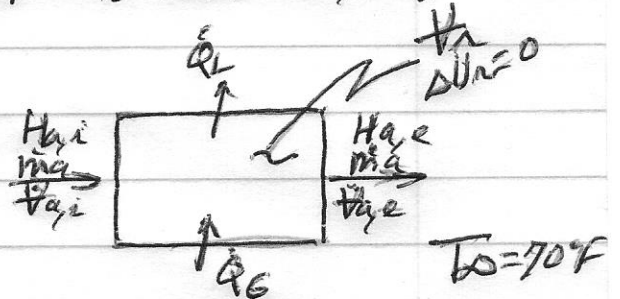 Q̇L
V̶r
ΔUr=0
Ha,i
ṁa
V̶a,i
Ha,e
ṁa
V̶a,e
Q̇G
T∞=70°F